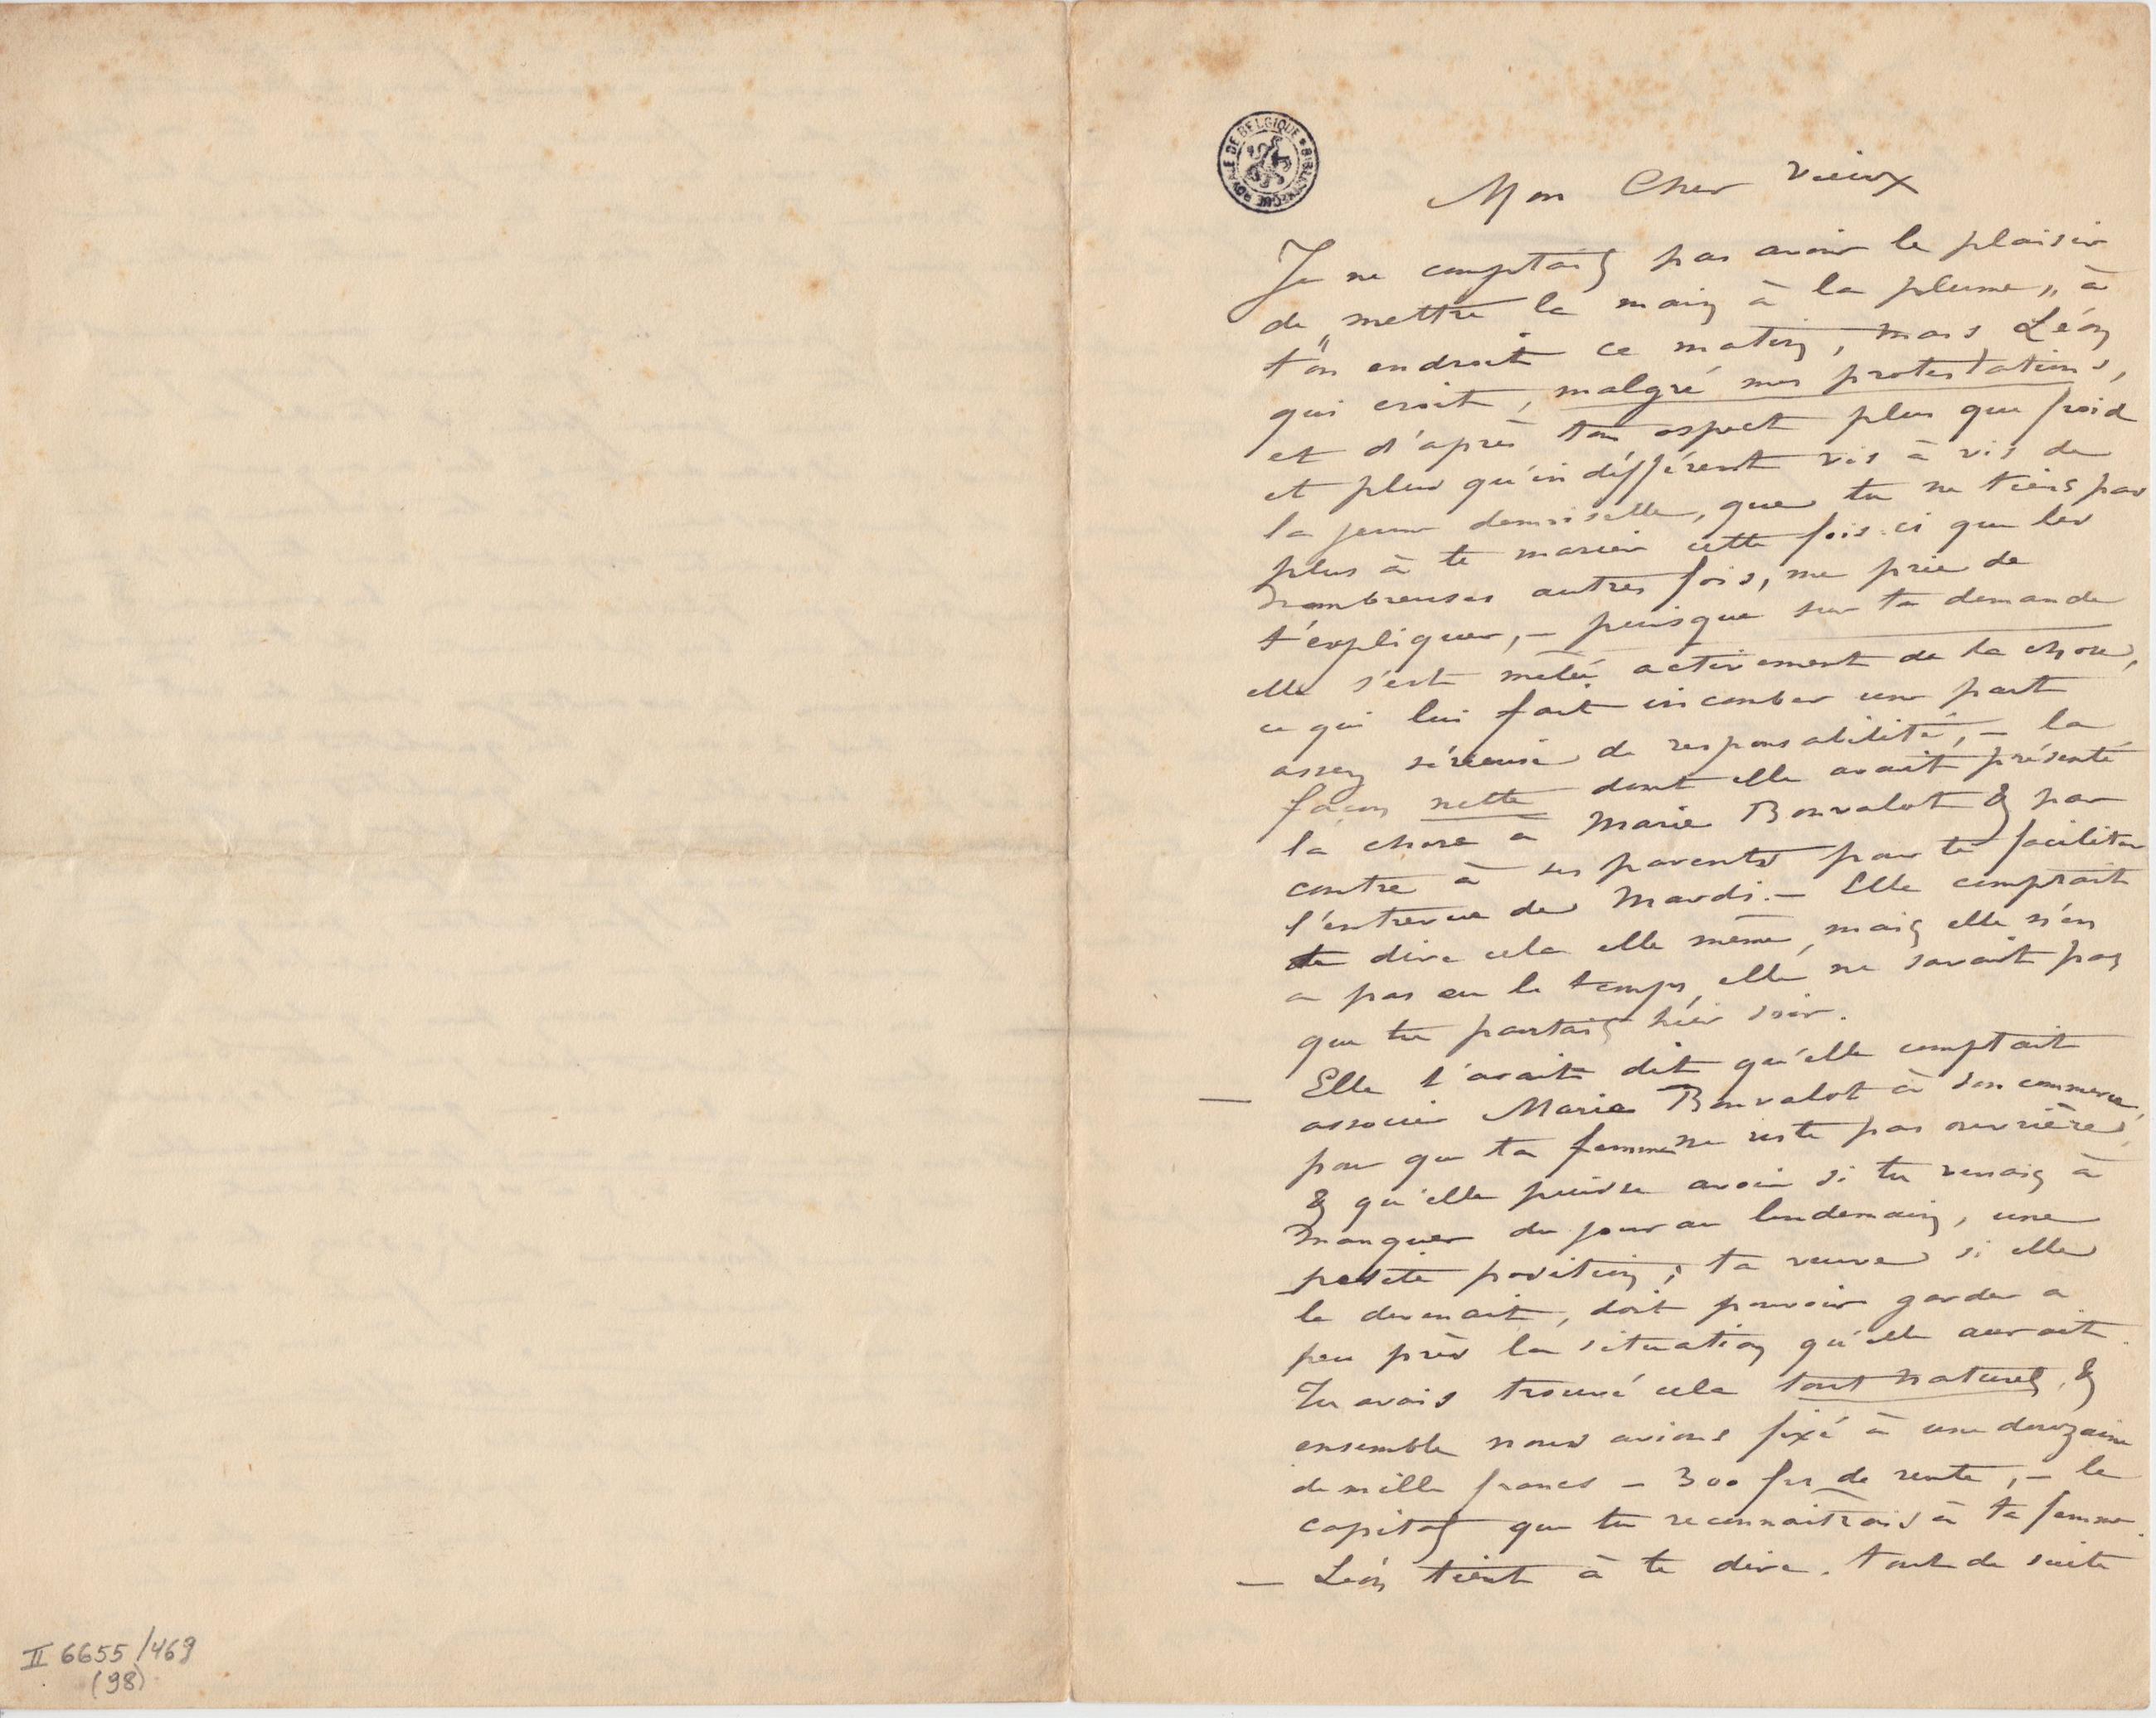 BIBLIOTHEQUE ROYALE DE BELGIQUE
Mon Cher vieux
Je ne comptais pas avoir le plaisir
de „mettre la main à la plume„ à
ton endroit ce matin, mais Léon
qui croit, malgré mes protestations,
et d'après ton aspect plus que froid
et plus qu'indifférent vis à vis de
la jeune demoiselle, que tu ne tiens pas
plus à te marier cette fois-ci que les
nombreuses autres fois, me prie de
t'expliquer, – puisque sur ta demande
elle s'est mêlée activement de la chose,
ce qui lui fait incomber une part
assez sérieuse de responsabilité, – la
façon nette dont elle avait présenté
la chose à Marie Bonvalot & par
contre à ses parents pour te faciliter
l'entrevue de Mardi. – Elle comptait
te dire cela elle même, mais elle n'en
a pas eu le temps, elle ne savait pas
que tu partais hier soir.
— Elle t'avait dit qu'elle comptait
associer Marie Bonvalot à son commerce,
pour que ta femme ne reste pas ouvrière,
& qu'elle puisse avoir si tu venais à
manquer du jour au lendemain, une
petite position; ta veuve si elle
le devenait, doit pouvoir garder a
peu près la situation qu'elle aurait.
Tu avais trouvé cela tout naturel, &
ensemble nous avions fixé à une douzaine
de mille francs – 300 frs de rente, – le
capital que tu reconnaîtrais à ta femme.
— Léon tient à te dire. tout de suite
II 6655/469
(98)